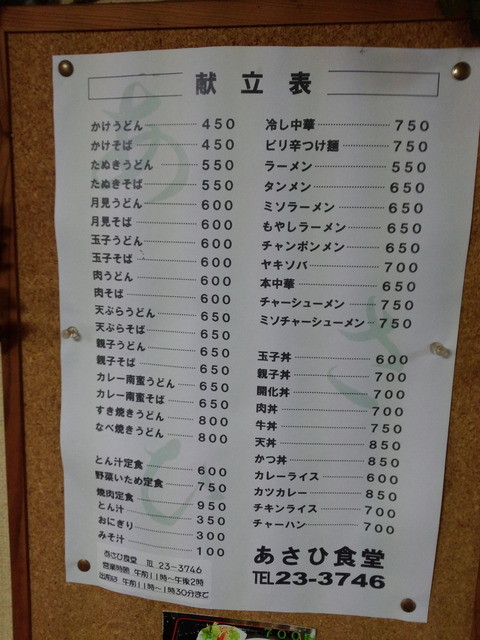 献立表
かけうどん 450
かけそば 450
たぬきうどん 550
たぬきそば 550
月見うどん 600
月見そば 600
玉子うどん 600
玉子そば 600
肉うどん 600
肉そば 600
天ぷらうどん 650
天ぷらそば 650
親子うどん 650
親子そば 650
カレー南蛮うどん 650
カレー南蛮そば 650
すき焼きうどん 800
なべ焼きうどん 800
とん汁定食 600
野菜いため定食 750
焼肉定食 950
とん汁 350
おにぎり 300
みそ汁 100
あさひ食堂 TEL 23-3746
営業時間 午前11時~午後2時
出前は 午前11時~1時30分まで
冷し中華 750
ピリ辛つけ麺 750
ラーメン 550
タンメン 650
ミソラーメン 650
もやしラーメン 650
チャンポンメン 650
ヤキソバ 700
本中華 650
チャーシューメン 750
ミソチャーシューメン 750
玉子丼 600
親子丼 700
開化丼 700
肉丼 700
牛丼 750
天丼 850
かつ丼 850
カレーライス 600
カツカレー 850
チキンライス 700
チャーハン 700
あさひ食堂
TEL23-3746
あさひ
700